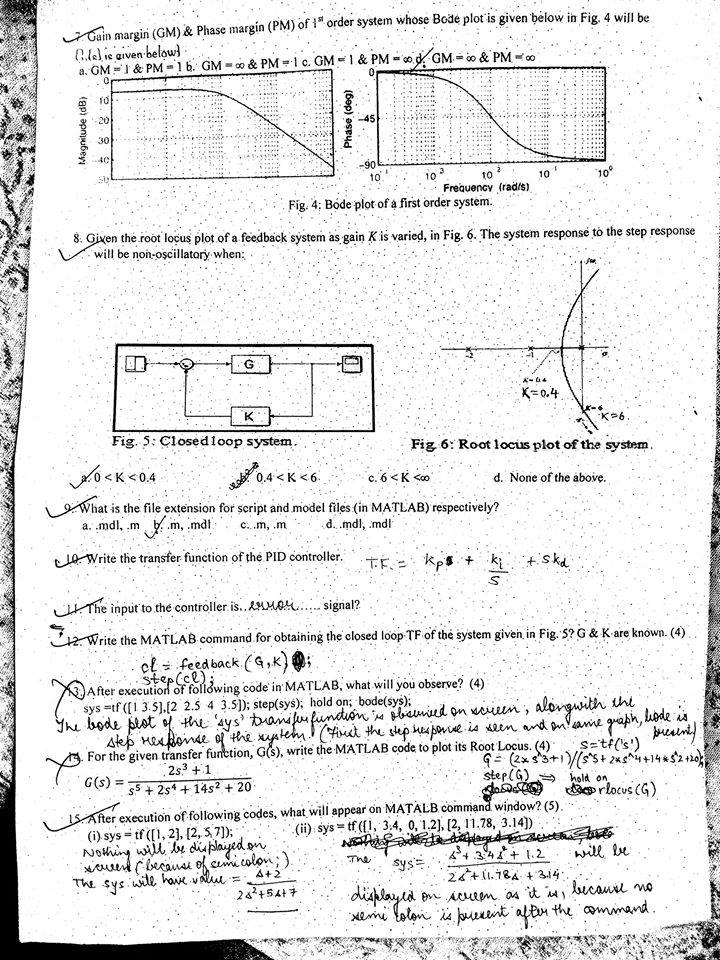 7. Gain margin (GM) & Phase margin (PM) of 1st order system whose Bode plot is given below in Fig. 4 will be
is given below)
a. GM = 1 & PM = 1 b. GM = ∞ & PM = 1 c. GM = 1 & PM = ∞ d. GM = ∞ & PM = ∞
Magnitude (dB)
0
10
20
30
40
50
Phase (deg)
0
-45
-90
10 10 10 10 10
Frequency (rad/s)
Fig. 4: Bode plot of a first order system.
8. Given the root locus plot of a feedback system as gain K is varied, in Fig. 6. The system response to the step response
will be non-oscillatory when:
G
K
-2
-1
σ
jω
K=0.4
K=0.4
K=6
K=6
Fig. 5: Closed loop system.
Fig. 6: Root locus plot of the system.
a. 0 < K < 0.4 b. 0.4 < K < 6 c. 6 < K < ∞ d. None of the above.
9. What is the file extension for script and model files (in MATLAB) respectively?
a. .mdl, .m b. .m, .mdl c. .m, .m d. .mdl, .mdl
10. Write the transfer function of the PID controller. T.F. = kp + ki/s + skd
11. The input to the controller is..error...... signal?
12. Write the MATLAB command for obtaining the closed loop TF of the system given in Fig. 5? G & K are known. (4)
cl = feedback (G,K);
step(cl);
13. After execution of following code in MATLAB, what will you observe? (4)
sys =tf ([1 3.5],[2 2.5 4 3.5]); step(sys); hold on; bode(sys);
The bode plot of the 'sys' transfer function is observed on screen, alongwith the
step response of the system. (First the step response is seen and on same graph, bode is
present)
14. For the given transfer function, G(s), write the MATLAB code to plot its Root Locus. (4) s=tf('s')
G(s) = (2s³ + 1)/(s⁵ + 2s⁴ + 14s² + 20)
G = (2*s^3+1)/(s^5+2*s^4+14*s^2+20);
step(G) ⇒ hold on
rlocus(G)
15. After execution of following codes, what will appear on MATALB command window? (5)
(i) sys = tf ([1, 2], [2, 5,7]); (ii) sys = tf([1, 3.4, 0, 1.2], [2, 11.78, 3.14])
Nothing will be displayed on
screen (because of semicolon ;)
The sys will have value = (s+2)/(2s²+5s+7)
The sys = (s³ + 3.4s² + 1.2)/(2s²+11.78s + 3.14) will be
displayed on screen as it is, because no
semi colon is present after the command.